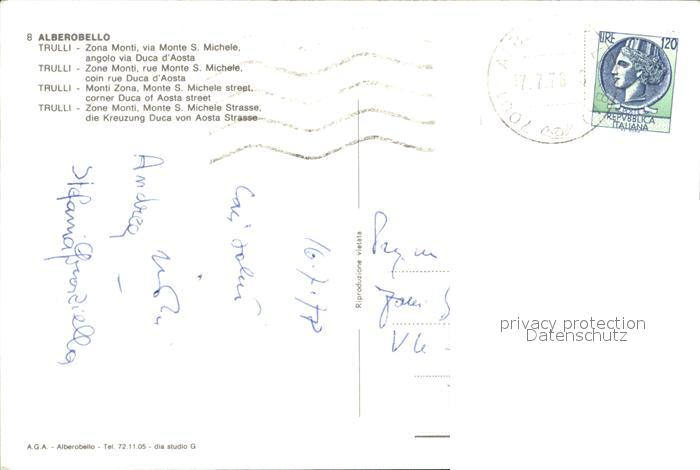 8 ALBEROBELLO
TRULLI - Zona Monti, via Monte S. Michele,
angolo via Duca d'Aosta
TRULLI - Zone Monti, rue Monte S. Michele,
coin rue Duca d'Aosta
TRULLI - Monti Zona, Monte S. Michele street,
corner Duca of Aosta street
TRULLI - Zone Monti, Monte S. Michele Strasse,
die Kreuzung Duca von Aosta Strasse
17.7.78
LIRE 120
REPVBBLICA
ITALIANA
16.7.78
Cari saluti
Andrea
Stefania
Riproduzione vietata
V.le
privacy protection
Datenschutz
A.G.A. - Alberobello - Tel. 72.11.05 - dia studio G